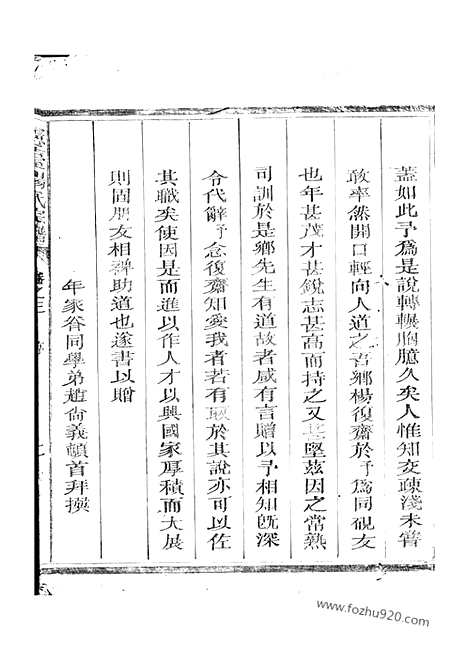 蓋如此予爲是說轉輾胸臆久矣人惟知交疎淺未嘗
敢率然開口輕向人道之吾鄉楊復齋於予爲同硯友
也年甚茂才甚銳志甚高而持之又甚堅茲因之常熟
司訓於是鄉先生有道故者咸有言贈以予相知旣深
令代辭予念復齋知愛我者若有取於其說亦可以佐
其職矣使因是而進以作人才以興國家厚積而大展
則固朋友相禆助道也遂書以贈
年家眷同學弟趙尙義頓首拜撰
氏宗譜
卷之三
www.fozhu920.com